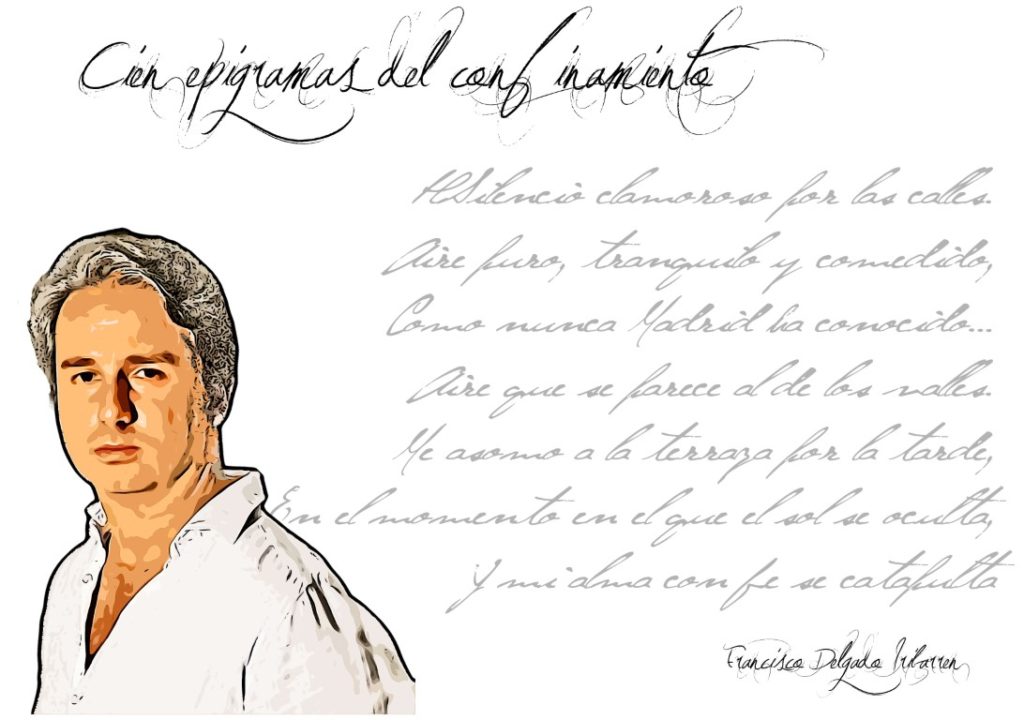 Cien epigramas del confinamiento
Silencio clamoroso por las calles.
Aire puro, tranquilo y comedido,
Como nunca Madrid ha conocido...
Aire que se parece al de los valles.
Me asomo a la terraza por la tarde,
En el momento en el que el sol se oculta,
Y mi alma con fe se catapulta
Francisco Delgado Iribarren